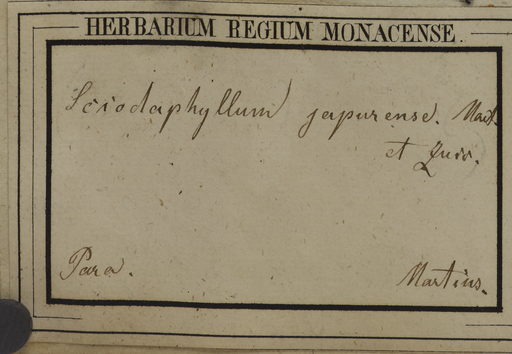 HERBARIUM REGIUM MONACENSE.
Sciodaphyllum japurense. Mart.
et Zucc.
Para.
Martius.